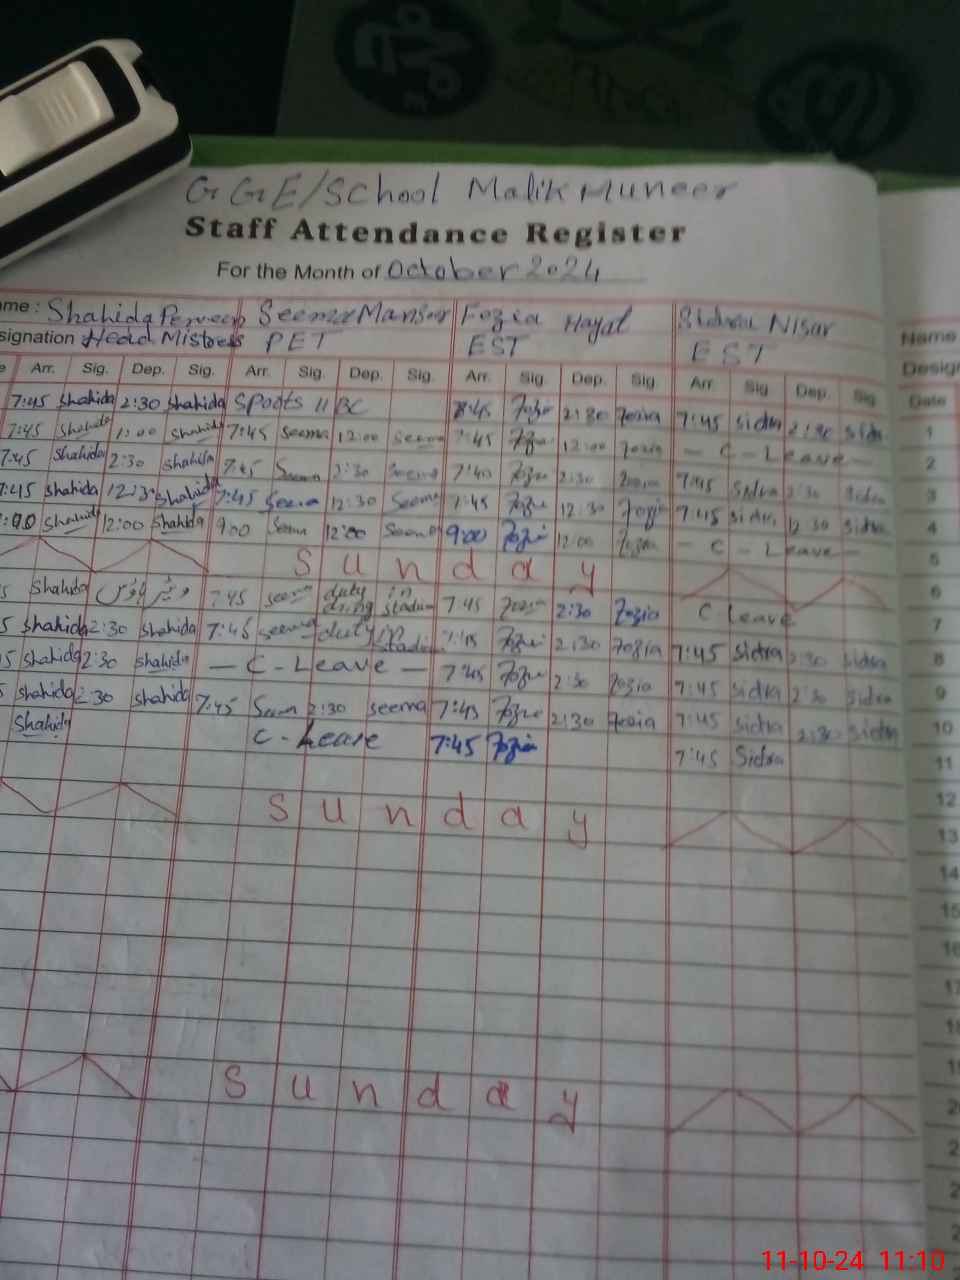 G GE/School Malik Muneer
Staff Attendance Register
For the Month of October 2024
ame: Shahida Perveen Seema Mansur Fozia Hayat Sidra Nisar
signation Head Mistress PET EST EST
e Arr. Sig. Dep. Sig. Arr. Sig. Dep. Sig. Arr. Sig. Dep. Sig. Arr. Sig Dep. Sig.
7:45 Shahida 2:30 Shahida 7:45 Fozia 2:30 Fozia 7:45 Sidra 2:30 Sidra
7:45 Shahida 12:00 Shahida 7:45 Seema 12:00 Seema 7:45 12:00 Fozia - C - Leave -
7:45 Shahida 2:30 Shahida 7:45 Seema 2:30 Seema 7:40 2:30 Fozia 7:45 Sidra 2:30 Sidra
7:45 Shahida Shahida 7:45 Seema 12:30 Seema 7:45 12:30 Fozia 7:45 Sidra 12:30 Sidra
:00 Shahida 12:00 Shahida 9:00 Seem 12:00 Seema 9:00 Fozia 12:00 Fozia - C - Leave -
Sunday
5 Shahida 7:45 Seema duty in stadium 7:45 Fozia 2:30 Fozia C Leave
5 Shahida 2:30 Shahida 7:45 Seema duty in 7:45 2:30 Fozia 7:45 Sidra 2:30 Sidra
5 Shahida 2:30 Shahida - C - Leave - 7:45 2:30 Fozia 7:45 Sidra 2:30 Sidra
5 Shahida 2:30 Shahida 7:45 Seem 2:30 Seema 7:45 2:30 Fozia 7:45 Sidra 2:30 Sidra
Shahida C - Leave 7:45 Fozia 7:45 Sidra
Sunday
Sunday
Name
Design
Date
1
2
3
4
5
6
7
8
9
10
11
12
13
14
15
16
17
11-10-24 11:10